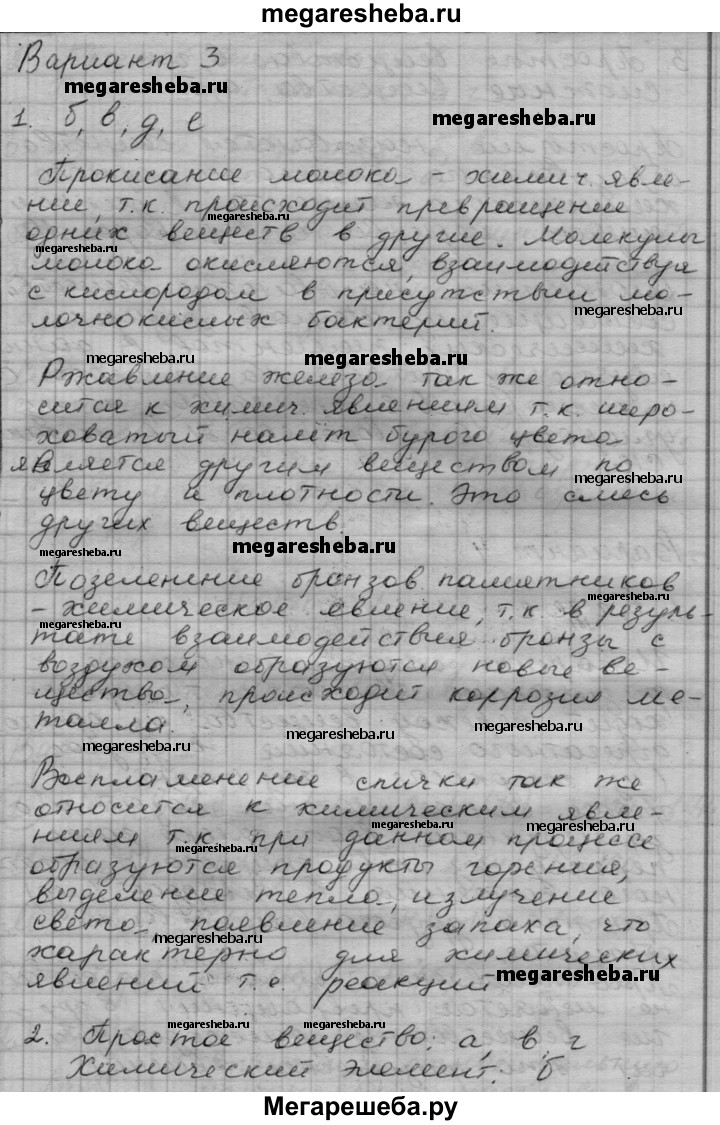 megaresheba.ru
Вариант 3
megaresheba.ru
1. б, в, д, е
megaresheba.ru
Прокисание молока – химич. явле-
ние, т.к. происходит превращение
megaresheba.ru
одних веществ в другие. Молекулы
megaresheba.ru
megaresheba.ru
молока окисляются, взаимодействуя
с кислородом в присутствии мо-
лочнокислых бактерий.
megaresheba.ru
megaresheba.ru
megaresheba.ru
Ржавление железа так же отно-
сится к химич. явлениям т.к. шеро-
ховатый налёт бурого цвета
является другим веществом по
megaresheba.ru
megaresheba.ru
цвету и плотности. Это смесь
других веществ.
megaresheba.ru
megaresheba.ru
megaresheba.ru
Позеленение бронзов. памятников
– химическое явление, т.к. в резуль-
megaresheba.ru
тате взаимодействия бронзы с
megaresheba.ru
воздухом образуются новые ве-
щества, происходит коррозия ме-
талла.
megaresheba.ru
megaresheba.ru
megaresheba.ru
Воспламенение спички так же
относится к химическим явле-
megaresheba.ru
megaresheba.ru
ниям т.к при данном процессе
megaresheba.ru
образуются продукты горения,
выделение тепла, излучение
света, появление запаха, что
megaresheba.ru
характерно для химических
явлений т.е. реакций
megaresheba.ru
megaresheba.ru
megaresheba.ru
2. Простое вещество: а, в, г
Химический элемент: б
megaresheba.ru
Мегарешеба.ру